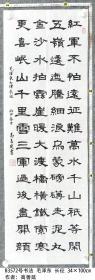 紅軍不怕遠征難萬水千山只等閒
五嶺逶迤騰細浪烏蒙磅礴走泥丸
金沙水拍雲崖暖大渡橋橫鐵索寒
更喜岷山千里雪三軍過後盡開顏
B3572号书法 毛泽东 长征 34×100cm
作者：高善延